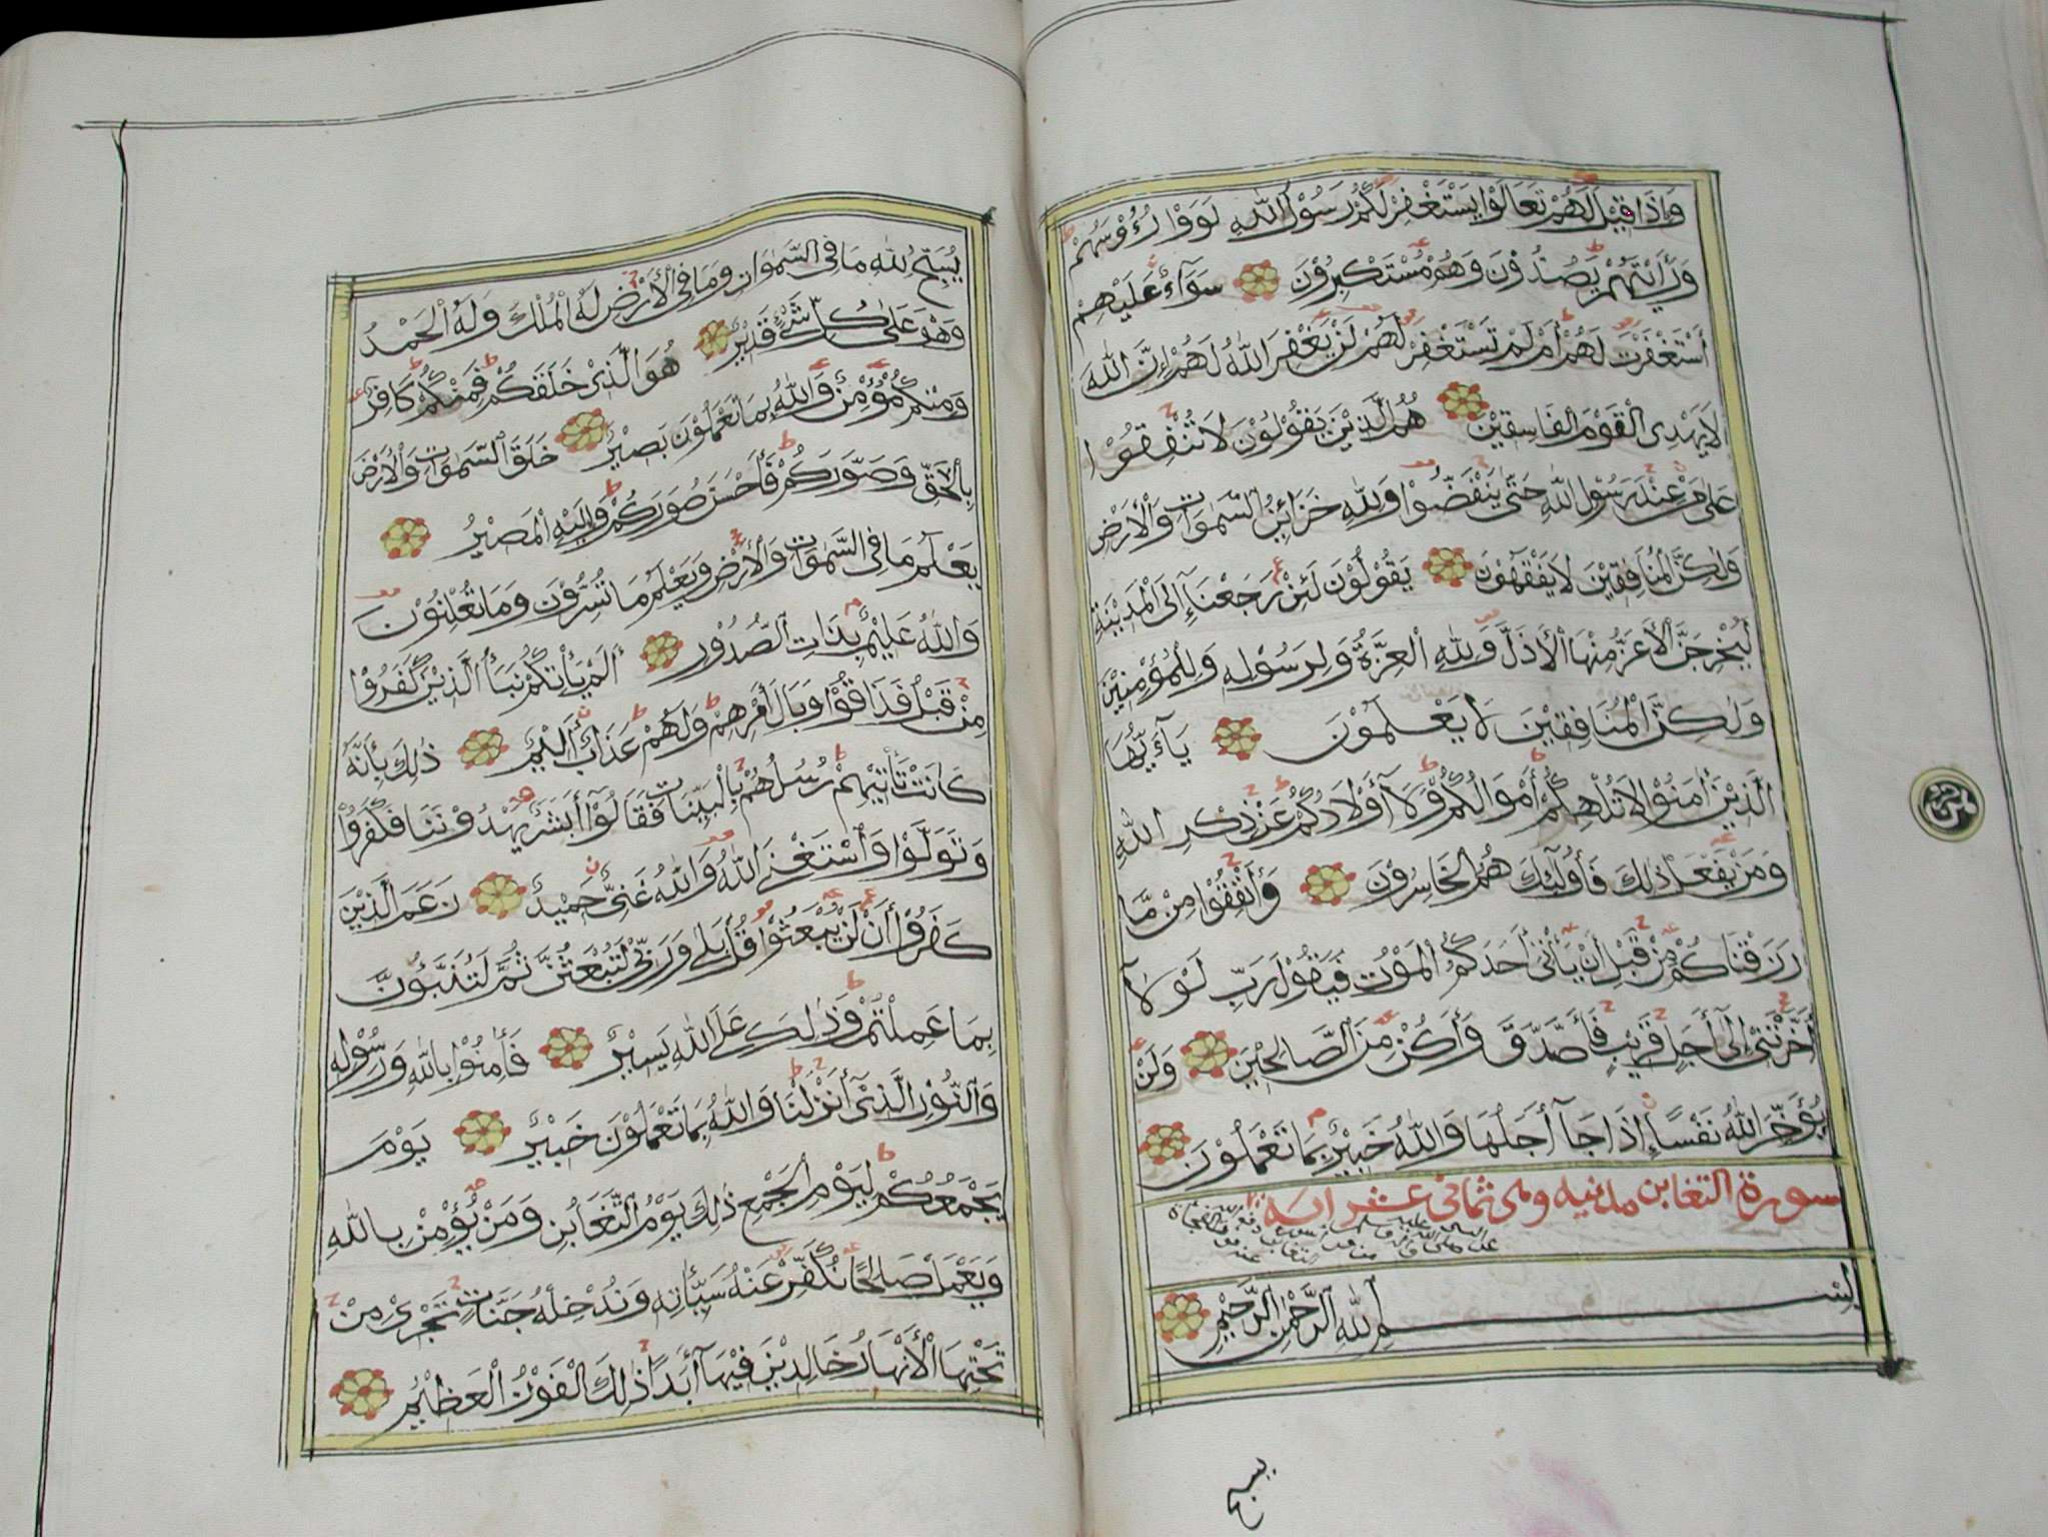 وَإِذَا قِيْلَ لَهُمْ تَعَالَوْا يَسْتَغْفِرْ لَكُمْ رَسُوْلُ اللّٰهِ لَوَوْا رُءُوْسَهُمْ
وَرَأَيْتَهُمْ يَصُدُّوْنَ وَهُمْ مُسْتَكْبِرُوْنَ سَوَآءٌ عَلَيْهِمْ
أَسْتَغْفَرْتَ لَهُمْ أَمْ لَمْ تَسْتَغْفِرْ لَهُمْ لَنْ يَغْفِرَ اللّٰهُ لَهُمْ إِنَّ اللّٰهَ
لَا يَهْدِى الْقَوْمَ الْفَاسِقِيْنَ هُمُ الَّذِيْنَ يَقُوْلُوْنَ لَا تُنْفِقُوْا
عَلٰى مَنْ عِنْدَ رَسُوْلِ اللّٰهِ حَتّٰى يَنْفَضُّوْا وَلِلّٰهِ خَزَائِنُ السَّمٰوَاتِ وَالْأَرْضِ
وَلٰكِنَّ الْمُنَافِقِيْنَ لَا يَفْقَهُوْنَ يَقُوْلُوْنَ لَئِنْ رَجَعْنَآ إِلَى الْمَدِيْنَةِ
لَيُخْرِجَنَّ الْأَعَزُّ مِنْهَا الْأَذَلَّ وَلِلّٰهِ الْعِزَّةُ وَلِرَسُوْلِهِ وَلِلْمُؤْمِنِيْنَ
وَلٰكِنَّ الْمُنَافِقِيْنَ لَا يَعْلَمُوْنَ يَآءَيُّهَا
الَّذِيْنَ اٰمَنُوْا لَا تُلْهِكُمْ أَمْوَالُكُمْ وَلَآ أَوْلَادُكُمْ عَنْ ذِكْرِ اللّٰهِ
وَمَنْ يَفْعَلْ ذٰلِكَ فَأُولٰٓئِكَ هُمُ الْخَاسِرُوْنَ وَأَنْفِقُوْا مِنْ مَّا
رَزَقْنَاكُمْ مِنْ قَبْلِ أَنْ يَأْتِىَ أَحَدَكُمُ الْمَوْتُ فَيَقُوْلَ رَبِّ لَوْلَآ
أَخَّرْتَنِىْ إِلٰٓى أَجَلٍ قَرِيْبٍ فَأَصَّدَّقَ وَأَكُنْ مِنَ الصَّالِحِيْنَ وَلَنْ
يُؤَخِّرَ اللّٰهُ نَفْسًا إِذَا جَآءَ أَجَلُهَا وَاللّٰهُ خَبِيْرٌ بِمَا تَعْمَلُوْنَ
سورة التغابن مدنيه وهى ثمانى عشر ايه
بِسْمِ اللّٰهِ الرَّحْمٰنِ الرَّحِيْمِ
يسبح
يُسَبِّحُ لِلّٰهِ مَا فِى السَّمٰوَاتِ وَمَا فِى الْأَرْضِ لَهُ الْمُلْكُ وَلَهُ الْحَمْدُ
وَهُوَ عَلٰى كُلِّ شَىْءٍ قَدِيْرٌ هُوَ الَّذِىْ خَلَقَكُمْ فَمِنْكُمْ كَافِرٌ
وَمِنْكُمْ مُؤْمِنٌ وَاللّٰهُ بِمَا تَعْمَلُوْنَ بَصِيْرٌ خَلَقَ السَّمٰوَاتِ وَالْأَرْضَ
بِالْحَقِّ وَصَوَّرَكُمْ فَأَحْسَنَ صُوَرَكُمْ وَإِلَيْهِ الْمَصِيْرُ
يَعْلَمُ مَا فِى السَّمٰوَاتِ وَالْأَرْضِ وَيَعْلَمُ مَا تُسِرُّوْنَ وَمَا تُعْلِنُوْنَ
وَاللّٰهُ عَلِيْمٌ بِذَاتِ الصُّدُوْرِ أَلَمْ يَأْتِكُمْ نَبَأُ الَّذِيْنَ كَفَرُوْا
مِنْ قَبْلُ فَذَاقُوْا وَبَالَ أَمْرِهِمْ وَلَهُمْ عَذَابٌ أَلِيْمٌ ذٰلِكَ بِأَنَّهُ
كَانَتْ تَأْتِيْهِمْ رُسُلُهُمْ بِالْبَيِّنَاتِ فَقَالُوْآ أَبَشَرٌ يَهْدُوْنَنَا فَكَفَرُوْا
وَتَوَلَّوْا وَاسْتَغْنَى اللّٰهُ وَاللّٰهُ غَنِىٌّ حَمِيْدٌ زَعَمَ الَّذِيْنَ
كَفَرُوْا أَنْ لَنْ يُبْعَثُوْا قُلْ بَلٰى وَرَبِّىْ لَتُبْعَثُنَّ ثُمَّ لَتُنَبَّؤُنَّ
بِمَا عَمِلْتُمْ وَذٰلِكَ عَلَى اللّٰهِ يَسِيْرٌ فَاٰمِنُوْا بِاللّٰهِ وَرَسُوْلِهِ
وَالنُّوْرِ الَّذِىْٓ أَنْزَلْنَا وَاللّٰهُ بِمَا تَعْمَلُوْنَ خَبِيْرٌ يَوْمَ
يَجْمَعُكُمْ لِيَوْمِ الْجَمْعِ ذٰلِكَ يَوْمُ التَّغَابُنِ وَمَنْ يُؤْمِنْ بِاللّٰهِ
وَيَعْمَلْ صَالِحًا نُكَفِّرْ عَنْهُ سَيِّئَاتِهِ وَنُدْخِلْهُ جَنَّاتٍ تَجْرِىْ مِنْ
تَحْتِهَا الْأَنْهَارُ خَالِدِيْنَ فِيْهَآ أَبَدًا ذٰلِكَ الْفَوْزُ الْعَظِيْمُ